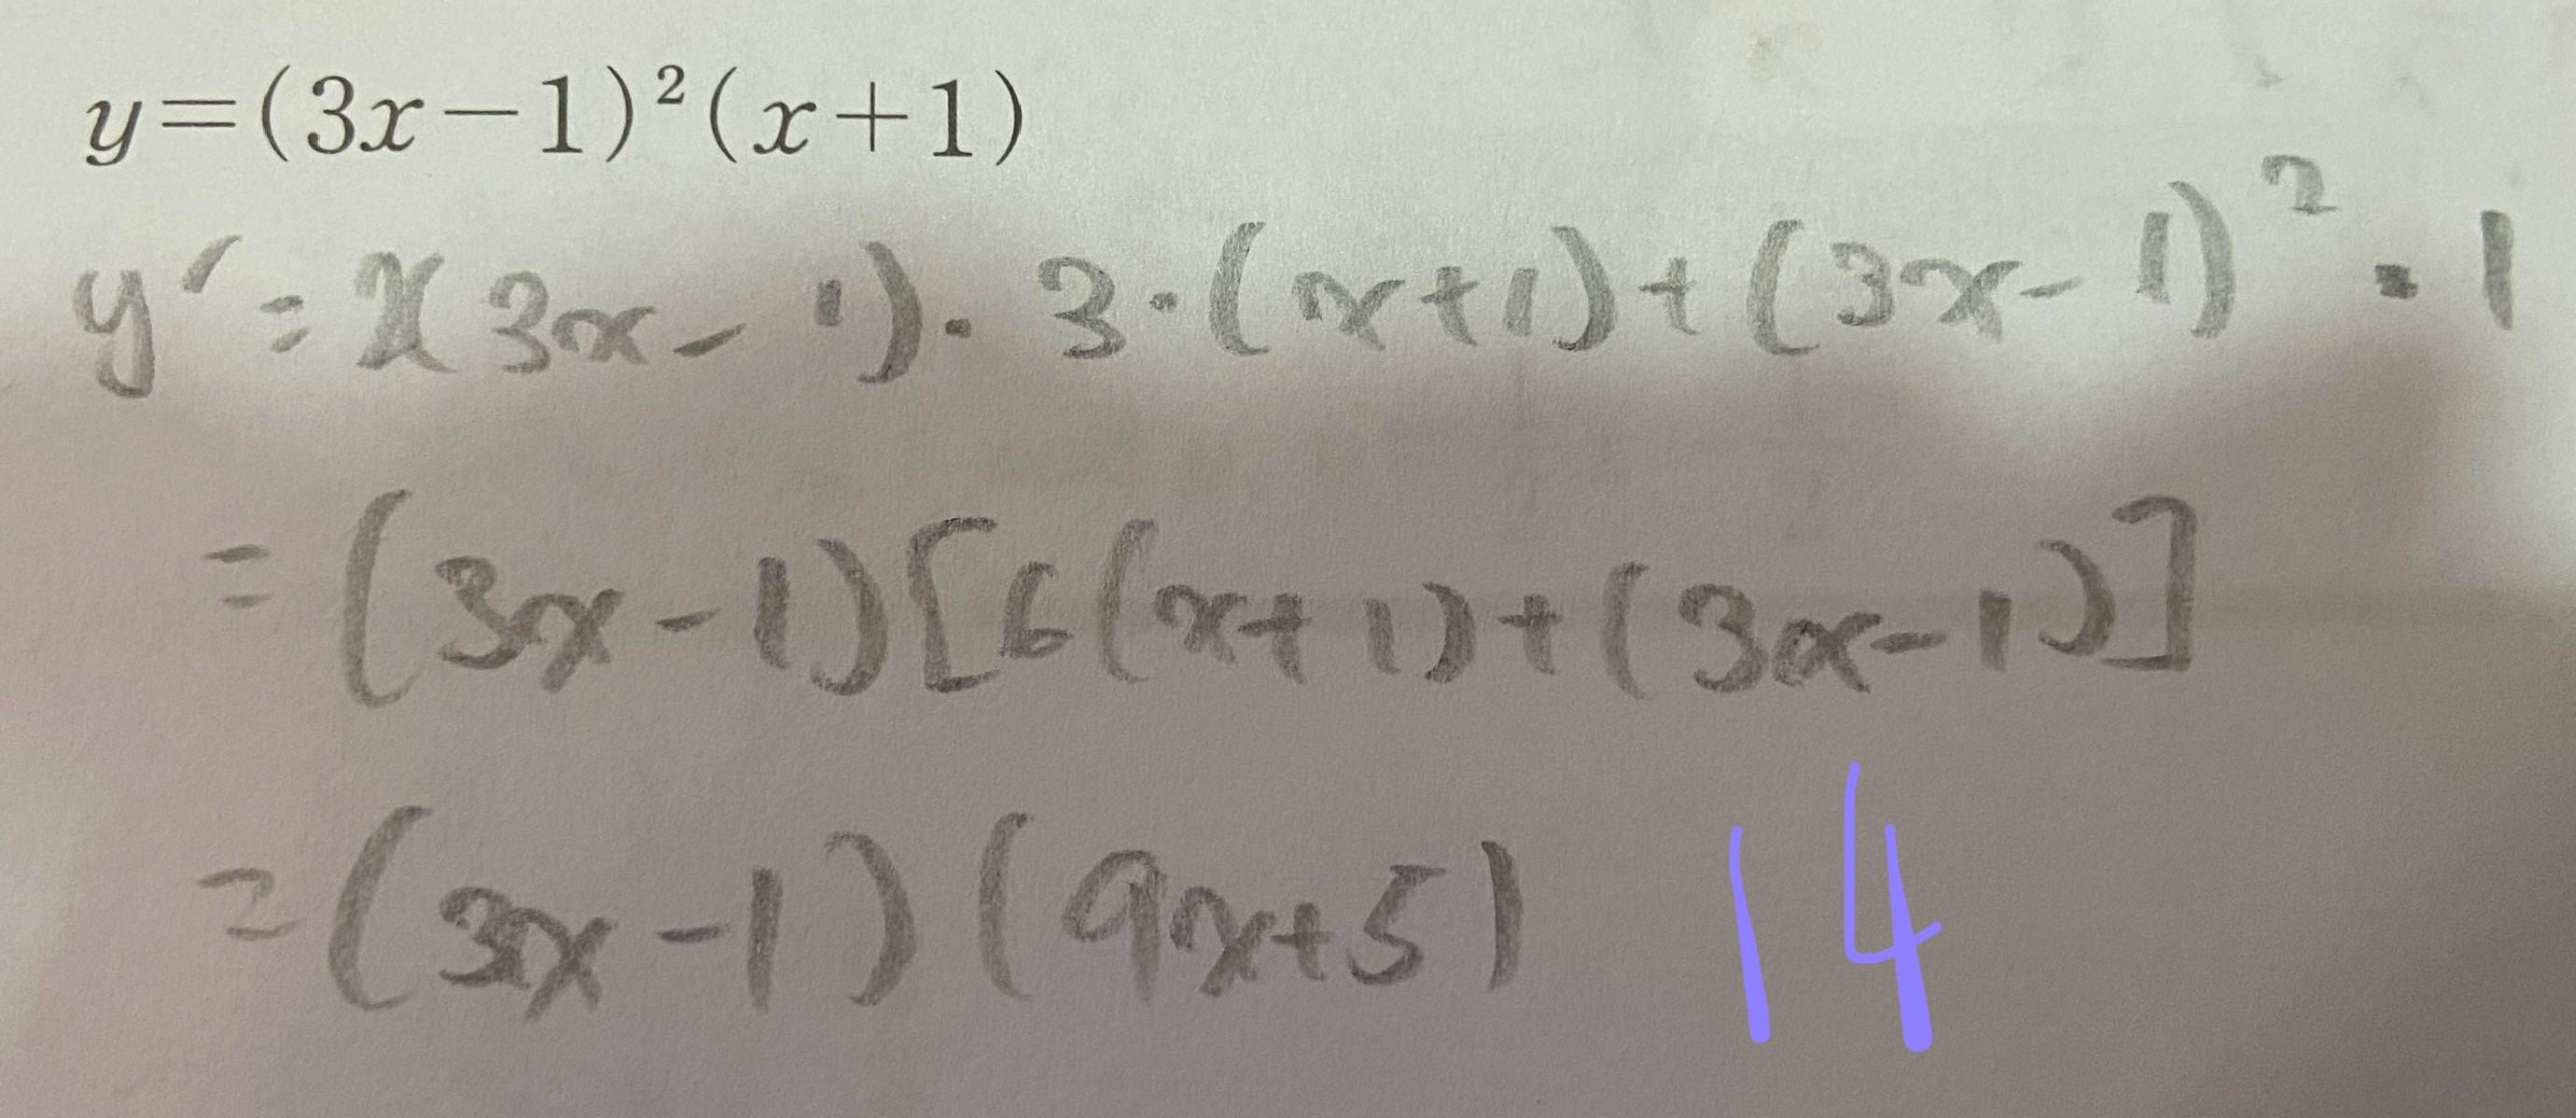 y=(3x-1)²(x+1)
y'=2(3x-1)·3·(x+1)+(3x-1)²·1
=(3x-1)[6(x+1)+(3x-1)]
=(3x-1)(9x+5) 14